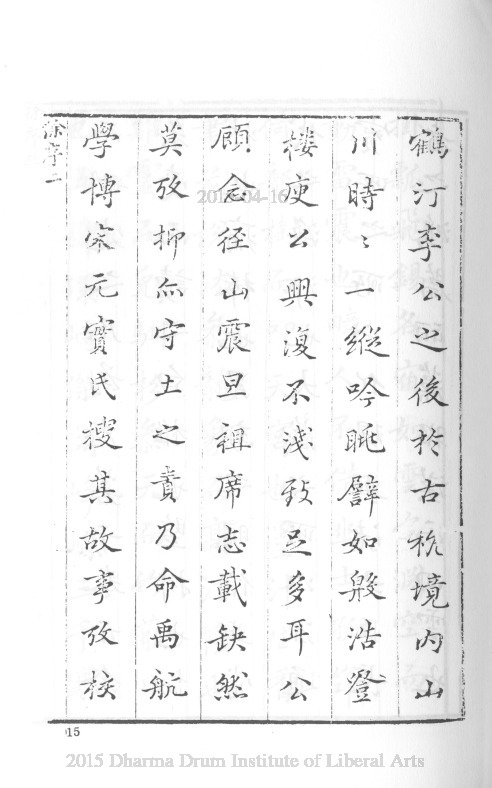 鶴汀李公之後於古杭境內山
川時々一縱吟眺譬如殷浩登
樓庾公興復不淺致足多耳公
顧念徑山震旦祖席志載缺然
莫攷抑亦守土之責乃命禹航
學博宋元實氏搜其故事攷校
徐序二
2015-04-16
015
2015 Dharma Drum Institute of Liberal Arts